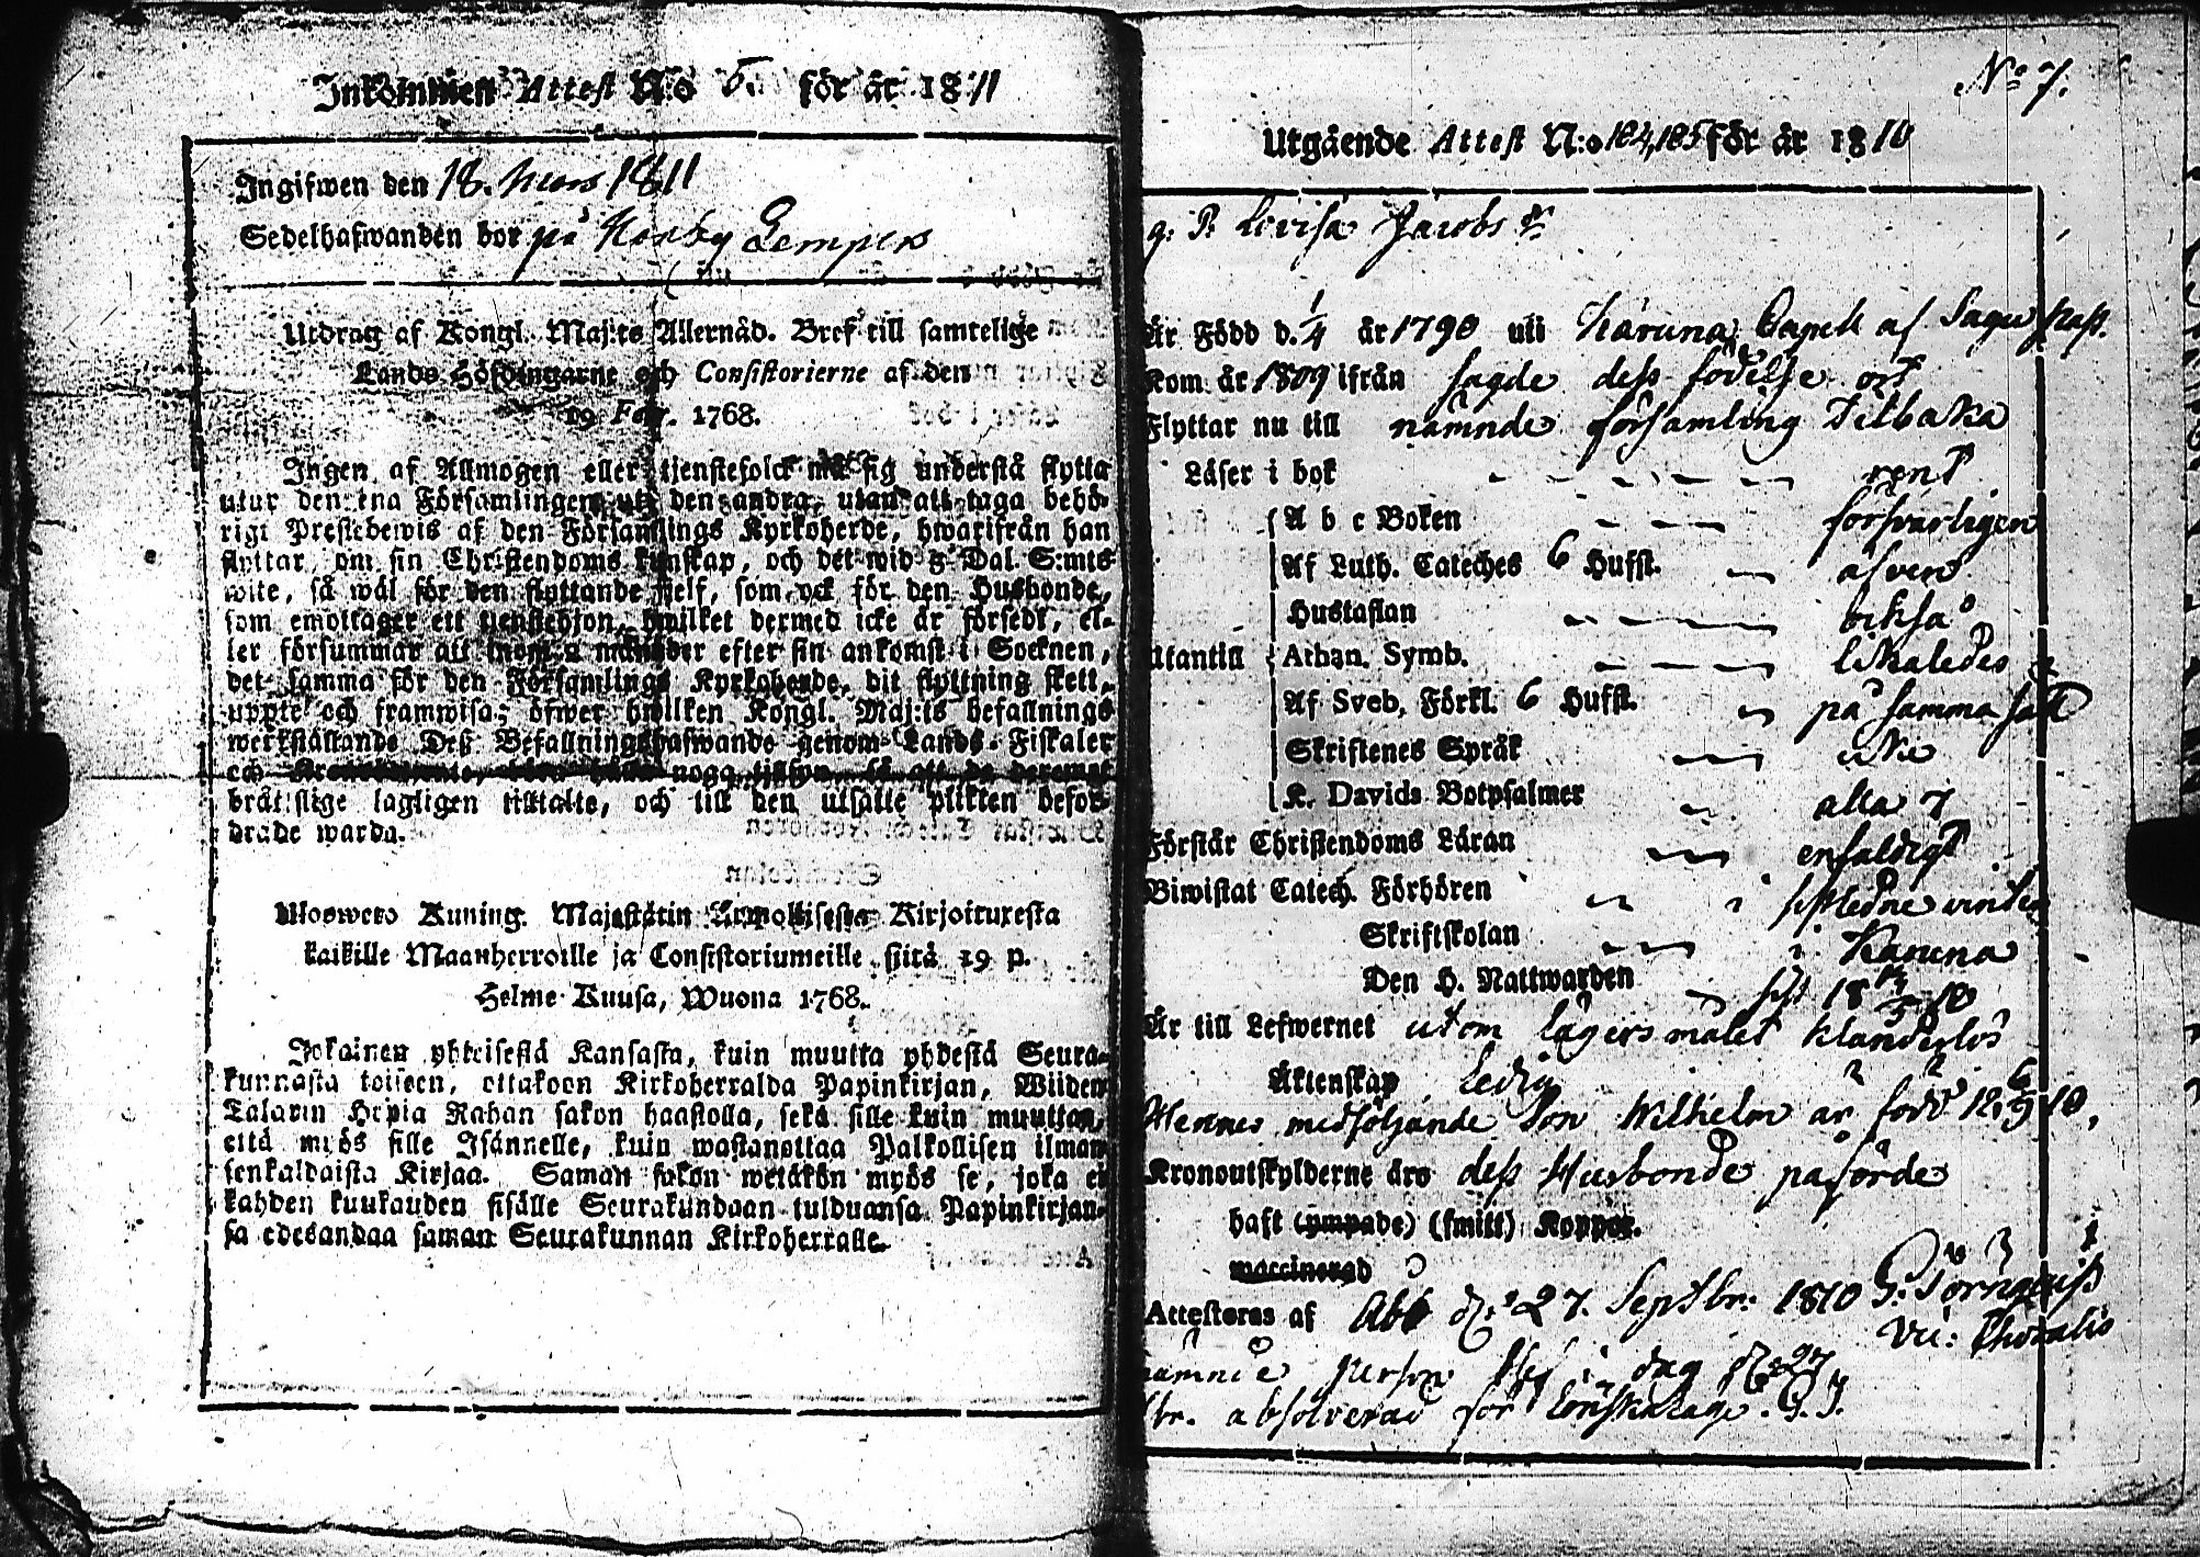 Inkommen Attest N:o 5. för år 1811
Ingifwen den 18. Mars 1811
Sedelhafwanden bor på Norby Gempers
Utdrag af Kongl. Maj:ts Allernåd. Bref till samtelige
Lands Höfdingarne och Consistorierne af den
19 Febr. 1768.
Ingen af Allmogen eller tjenstefolck må sig understå flytta
utur den ena Församlingen uti den andra, utan att taga behö-
rigt Prestebewis af den Församlings Kyrkoherde, hwarifrån han
flyttar, om sin Christendoms kunskap, och det wid 5 Dal. S:mts
wite, så wäl för den flyttande sjelf, som ock för den Husbonde,
som emottager ett tjenstehjon, hwilket dermed icke är försedt, el-
ler försummar att inom 2 månader efter sin ankomst i Socknen,
det samma för den Församlings Kyrkoherde, dit flyttning skett,
uppte och framwisa; öfwer hwilken Kongl. Maj:ts befallnings
werkställande Deß Befallningshafwande genom Lands-Fiskaler
och noga tillsyn så att de deremot
brått:slige lagligen tilltalte, och till den utsatte plikten befor-
drade warda.
Uloswero Kuning. Majestätin Armollisesta Kirjoituxesta
kaikille Maanherroille ja Consistoriumeille siitä 19 p.
Helme Kuusa, Wuona 1768.
Jokainen yhteisestä Kansasta, kuin muutta yhdestä Seura-
kunnasta toiseen, ottakoon Kirkoherralda Papinkirjan, Wiiden
Talarin Hopia Rahan sakon haastolla, sekä sille kuin muuttaa,
että myös sille Isännelle, kuin wastanottaa Palkollisen ilman
senkaldaista Kirjaa. Saman sakon wetäkön myös se, joka ei
kahden kuukauden sisälle Seurakundaan tulduansa Papinkirjan-
sa edesandaa saman Seurakunnan Kirkoherralle.
No 7.
Utgående Attest N:o 184, 185 för år 1810
q. P. Lovisa Jacobs dr
Är Född d. 1/4 år 1790 uti Karuna Capell af Sagu
Kom år 1809 ifrån sagde dess födelse ort
Flyttar nu till nämnde församling Tilbaka
Läser i bok rent
A b c Boken försvarligen
Af Luth. Cateches 6 Hufst. äfven
Hustaflan också
Utantill Athan. Symb. likaledes
Af Sveb. Förkl. 6 Hufst. på samma sätt
Skriftenes Språk icke
K. Davids Botpsalmer alla 7
Förstår Christendoms Läran enfaldigt
Biwistat Catech. Förhören i sistledne vinter
Skriftskolan i Karuna
Den H. Nattwarden sist 18 10
Är till Lefwernet utom lägersmålet klanderlös
Äktenskap Ledig
Hennes medföljande Son Wilhelm är född 12/9 10,
Kronoutskylderne äro dess Husbonde påförde
haft (ympade) (smitt) Koppor.
waccinerad
Attesteras af Åbo d. 27. Septbr. 1810 G. Törnqvist
Vic: Choralis
nämnde person blef i dag d. 27
br. absolverad för Lönskaläge. G. T.